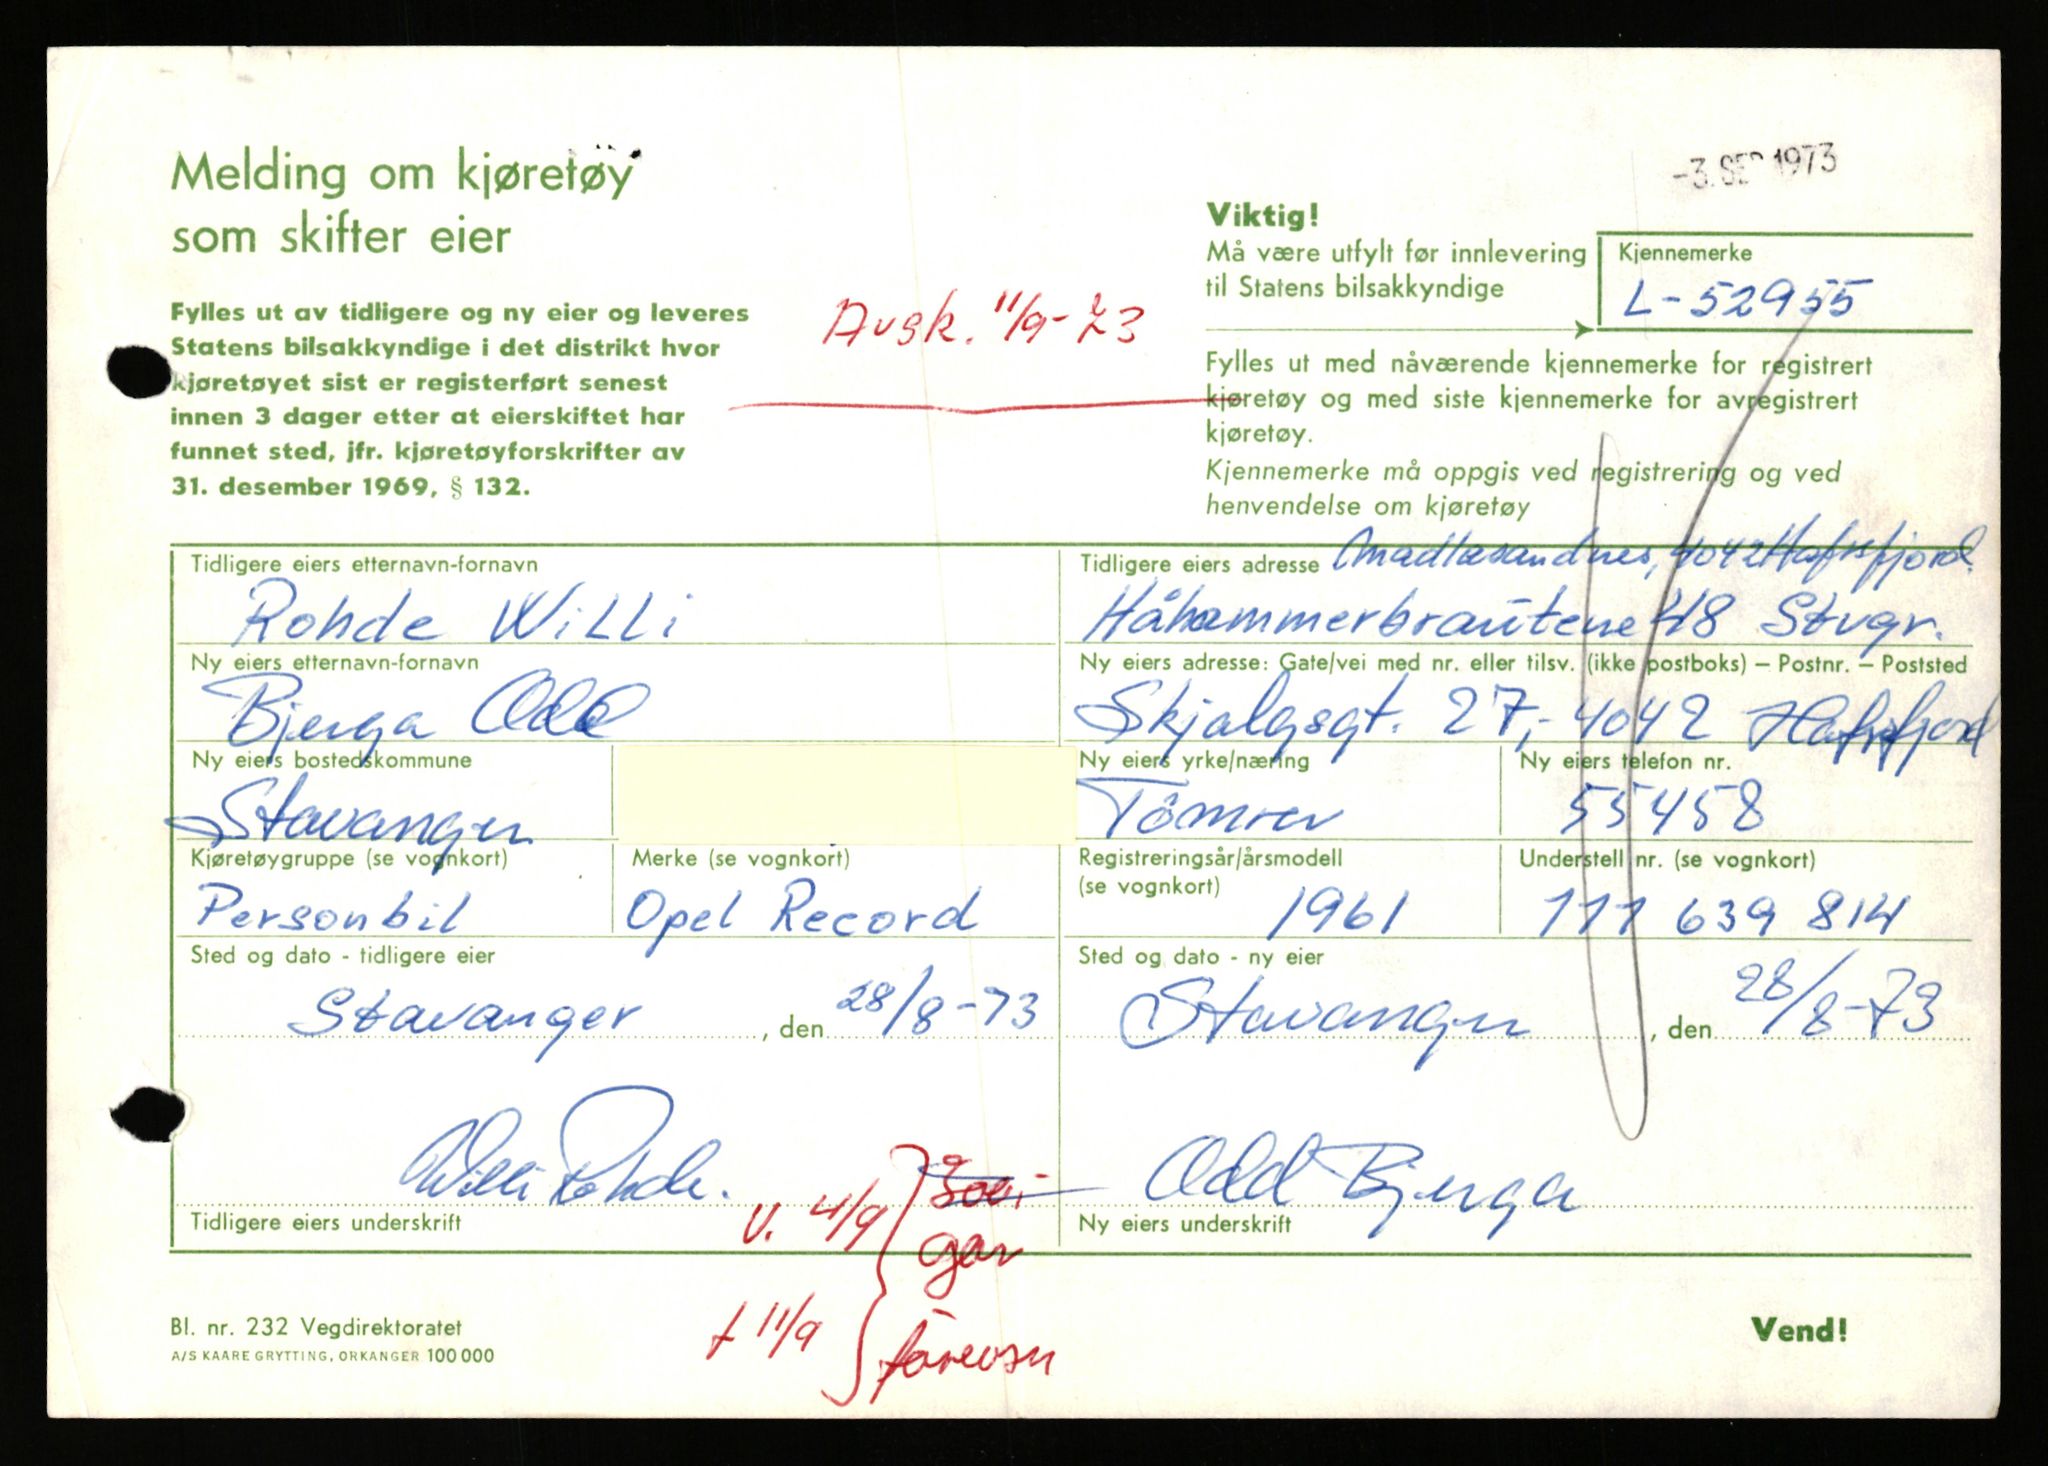 Melding om kjøretøy
som skifter eier
Fylles ut av tidligere og ny eier og leveres
Statens bilsakkyndige i det distrikt hvor
kjøretøyet sist er registerført senest
innen 3 dager etter at eierskiftet har
funnet sted, jfr. kjøretøyforskrifter av
31. desember 1969, § 132.
Avsk. 11/9-73
-3. SEP. 1973
Viktig!
Må være utfylt før innlevering
til Statens bilsakkyndige
Kjennemerke
L-52955
Fylles ut med nåværende kjennemerke for registrert
kjøretøy og med siste kjennemerke for avregistrert
kjøretøy.
Kjennemerke må oppgis ved registrering og ved
henvendelse om kjøretøy
Tidligere eiers etternavn-fornavn
Rohde Willi
Tidligere eiers adresse Madlasandnes, 4042 Hafrsfjord.
Håhammerbrautene 48 Stvgr.
Ny eiers etternavn-fornavn
Bjerga Odd
Ny eiers adresse: Gate/vei med nr. eller tilsv. (ikke postboks) – Postnr. – Poststed
Skjalgsgt. 27,- 4042 Hafrsfjord
Ny eiers bostedskommune
Stavanger
Ny eiers yrke/næring
Tömrer
Ny eiers telefon nr.
55458
Kjøretøygruppe (se vognkort)
Personbil
Merke (se vognkort)
Opel Record
Registreringsår/årsmodell
(se vognkort)
1961
Understell nr. (se vognkort)
111 639 814
Sted og dato - tidligere eier
Stavanger, den 28/8-73
Sted og dato - ny eier
Stavanger, den 28/8-73
Willi Rohde.
Tidligere eiers underskrift
Odd Bjerga
Ny eiers underskrift
v. 4/9
gar
t 11/9
Bl. nr. 232 Vegdirektoratet
A/S KAARE GRYTTING, ORKANGER 100 000
Vend!